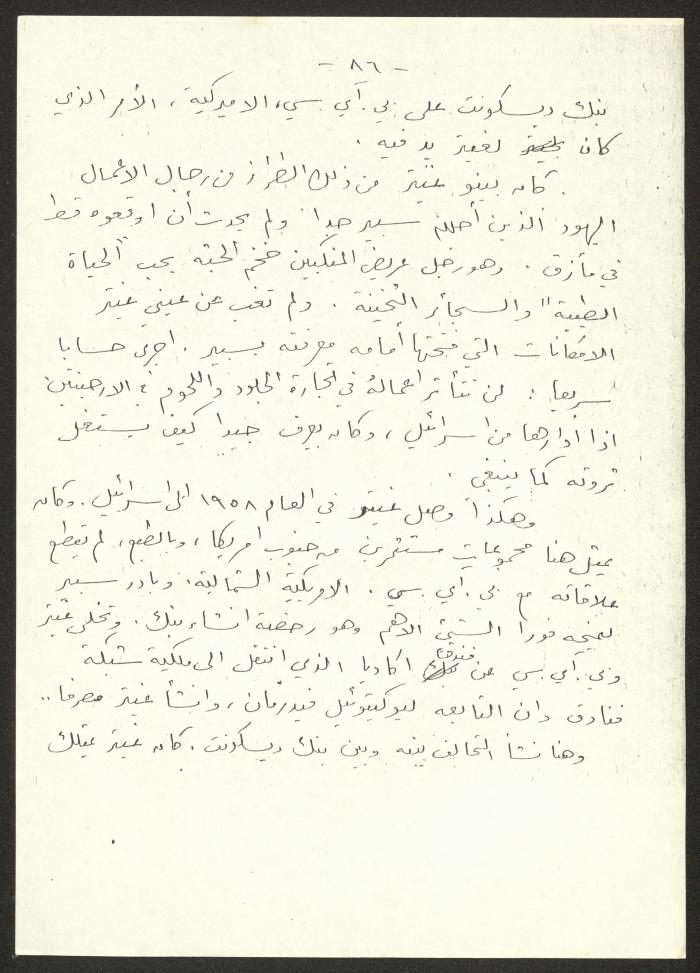 - ٨٦ -
بنك ديسكونت على بي. آي سي، الاميركية، الأمر الذي
كان لغيتر يد فيه .
كان بينو غيتر من ذلك الطراز من رجال الاعمال
اليهود الذين أحبهم سبير جدا ولم يحدث أن اوقعوه قط
في مأزق . وهو رجل عريض المنكبين ضخم الجثة يحب "الحياة
الطيبة" والسجائر الثخينة . ولم تغب عن عيني غيتر
الامكانات التي فتحتها أمامه معرفته بسبير . اجرى حسابا
سريعا : لن تتأثر اعماله في تجارة الجلود واللحوم في الارجنتين
اذا أدارها من اسرائيل ، وكان يعرف جيدا كيف يستغل
ثروته كما ينبغي .
وهكذا وصل غيتر في العام ١٩٥٨ الى اسرائيل . وكان
يمثل هنا مجموعات مستثمرين من جنوب امريكا ، وبالطبع ، لم يقطع
علاقاته مع بي . اي . سي . الامريكية الشمالية . وبادر سبير
ليمنحه فورا الشيئ الاهم وهو رخصة انشاء بنك . وتخلى غيتر
وبي . آي . سي عن فندق اكاديا الذي انتقل الى ملكية شبكة
فنادق دان التابعة ليوكيتوئيل فيدرمان ، وانشأ غيتر مصرفا ..
وهنا نشأ التحالف بينه وبين بنك ديسكونت . كان غيتر يمتلك